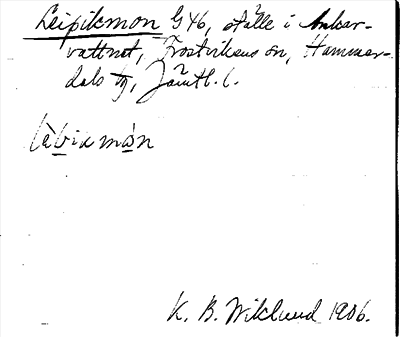 Leipikmon G46, ställe i Ankar-
vattnet, Frostvikens sn, Hammer-
dals tg, Jämtl. l.
K. B. Wiklund 1906.